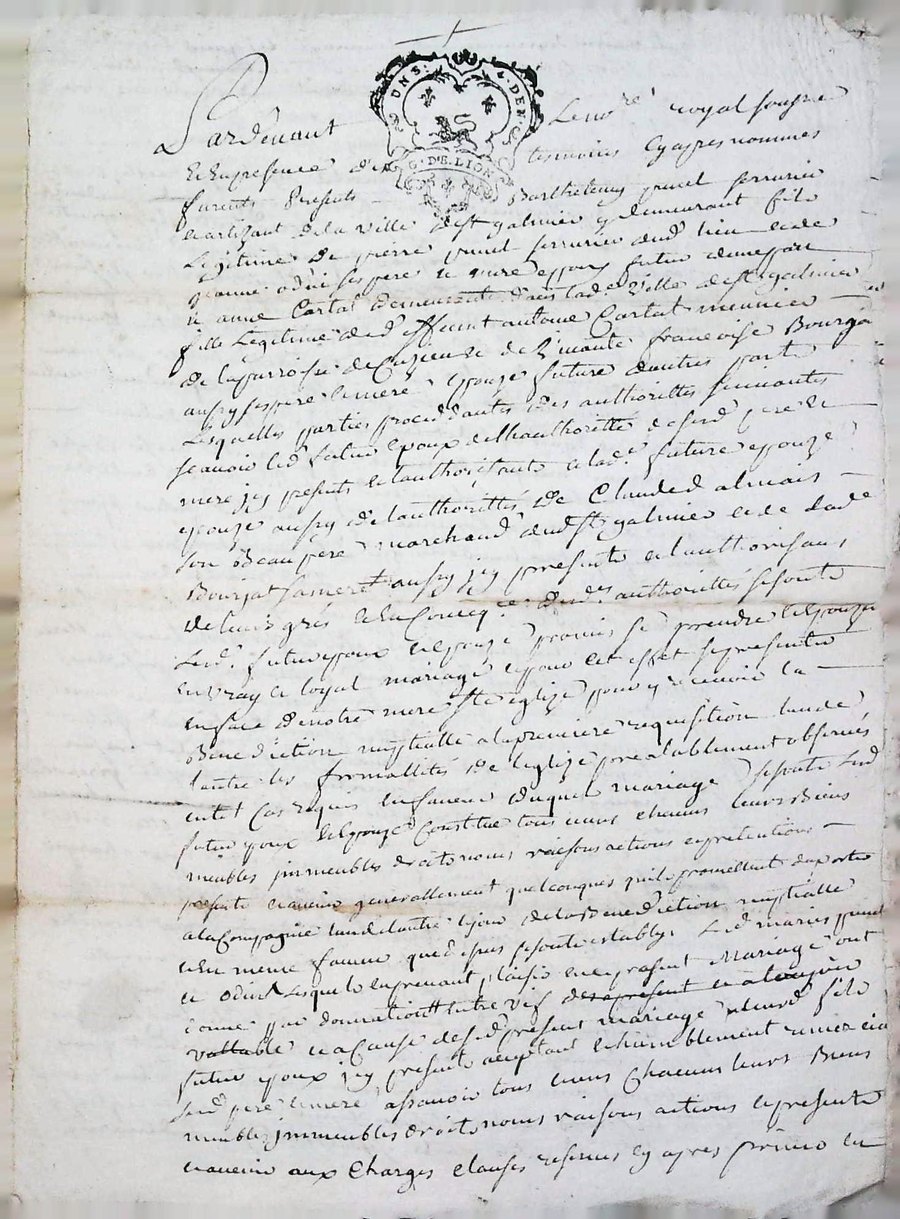 UNS. 4. DEN.
G. DE LION
Pardevant Le no.re royal soussigné
et en presence des temoins cy apres nommés
furents presents Barthelemy serrurier
et artisant de la ville de st galmier y demeurant fils
Legitime de pierre serrurier dud. lieu et de
jeanne odin ses pere et mere epoux futur d'une part
et anne Cartal demeurante dans lad.e ville de st galmier
fille Legitime de d effunt antoine Cartal meunier
de la parroisse de et de francoise Bourja
aussy ses pere et mere Epouze future d'autre part
Lesquelles parties proceddantes des authorittés suivantes
scavoir led. futur epoux de l'hauthoritté de sesd. pere et
mere icy presents et l'authorisants et lad.e future epouze
epouze aussy de l'authorittés de Claude dalmais
son Beau pere marchand dud. st galmier et de lad.e
Bourja sa mere aussy icy presents et l'authorisans
de leurs grés et en conseq.ce desd.es authorittés se sont
Lesd. futur epoux et epouze promis se prendre et epouzer
en vray et loyal mariage et pour cet effet se presenter
en face de notre mere ste eglize pour y recevoir la
Benediction nuptialle a la premiere requisition l'un de
l'autre les formallités de l'eglize prealablement observés
en tel cas requis en faveur duquel mariage se sont Lesd.
futur epoux et epouze Constitue tous leurs chacuns leurs Biens
meubles immeubles droits noms raisons actions et pretentions
presents et avenir generallement quelconques qu'ils promettent d'aporter
a la Compagnie l'un de l'autre le jour de la Benediction nuptialle
et en meme faveur que dessus se sont establys Lesd. mariés
et odin Lesquels en prenant plaisir en le present Mariage ont
donné par donnation entre vifs des apresent et a toujours
vallable et a Cause desd. present mariage aud. fils
futur epoux icy present acceptant et humblement remerciant
sesd. pere et mere assavoir tous leurs Chacuns leurs Biens
meubles immeubles droits noms raisons actions et presents
et avenir aux Charges clauses reserves cy apres primo en